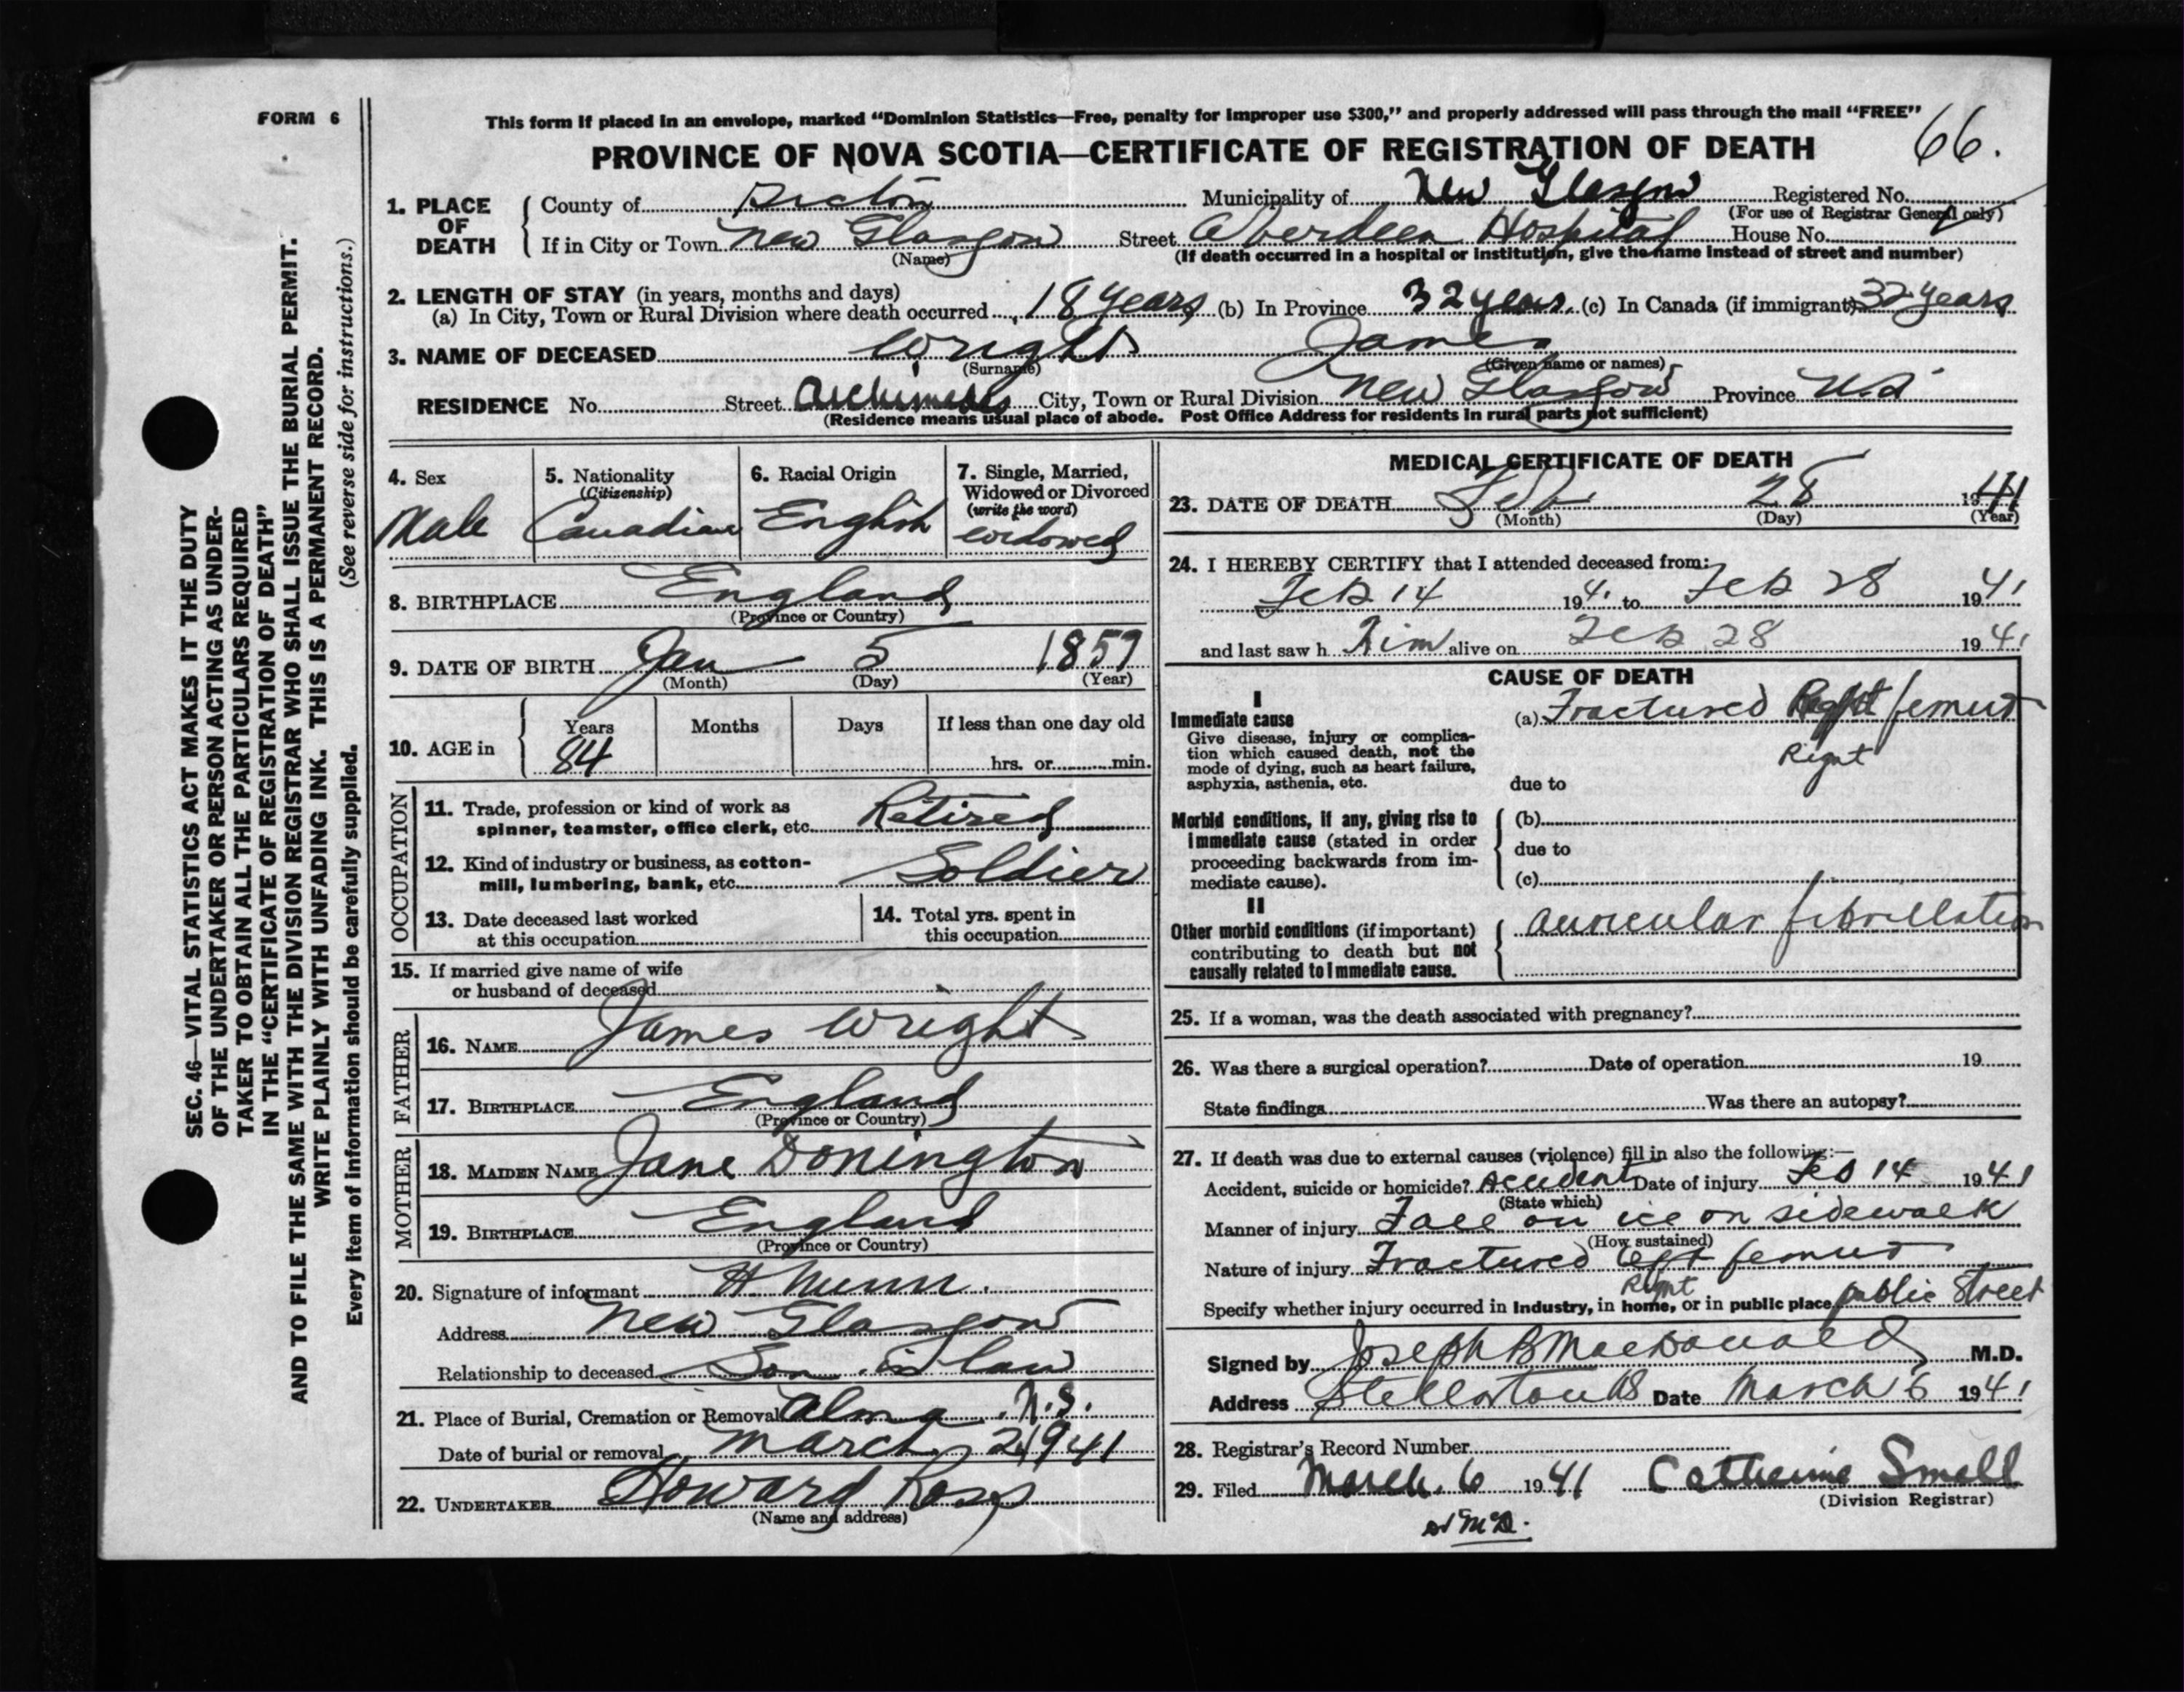 FORM 6
This form if placed in an envelope, marked "Dominion Statistics—Free, penalty for improper use $300," and properly addressed will pass through the mail "FREE"
PROVINCE OF NOVA SCOTIA—CERTIFICATE OF REGISTRATION OF DEATH 66.
1. PLACE OF DEATH County of Pictou Municipality of New Glasgow Registered No.
(For use of Registrar General only)
If in City or Town New Glasgow Street Aberdeen Hospital House No.
(Name) (If death occurred in a hospital or institution, give the name instead of street and number)
2. LENGTH OF STAY (in years, months and days)
(a) In City, Town or Rural Division where death occurred 18 years (b) In Province 32 years. (c) In Canada (if immigrant) 32 years
3. NAME OF DECEASED Wright James
(Surname) (Given name or names)
RESIDENCE No. Street Archimedes City, Town or Rural Division New Glasgow Province N.S.
(Residence means usual place of abode. Post Office Address for residents in rural parts not sufficient)
4. Sex Male
5. Nationality (Citizenship) Canadian
6. Racial Origin English
7. Single, Married, Widowed or Divorced (write the word) widowed
8. BIRTHPLACE England
(Province or Country)
9. DATE OF BIRTH Jan 5 1857
(Month) (Day) (Year)
10. AGE in Years Months Days If less than one day old
84 hrs. or min.
OCCUPATION
11. Trade, profession or kind of work as
spinner, teamster, office clerk, etc. Retired
12. Kind of industry or business, as cotton-
mill, lumbering, bank, etc. Soldier
13. Date deceased last worked
at this occupation
14. Total yrs. spent in
this occupation
15. If married give name of wife
or husband of deceased
FATHER
16. NAME James Wright
17. BIRTHPLACE England
(Province or Country)
MOTHER
18. MAIDEN NAME Jane Donington
19. BIRTHPLACE England
(Province or Country)
20. Signature of informant H. Nunn.
Address New Glasgow
Relationship to deceased Son in law
21. Place of Burial, Cremation or Removal Alma. N.S.
Date of burial or removal March 2 1941
22. UNDERTAKER Howard Ross
(Name and address)
MEDICAL CERTIFICATE OF DEATH
23. DATE OF DEATH Feb 28 1941
(Month) (Day) (Year)
24. I HEREBY CERTIFY that I attended deceased from:
Feb 14 1941 to Feb 28 1941
and last saw h him alive on Feb 28 1941
CAUSE OF DEATH
I
Immediate cause
Give disease, injury or complica-
tion which caused death, not the
mode of dying, such as heart failure,
asphyxia, asthenia, etc.
(a) Fractured Right femur
Right
due to
Morbid conditions, if any, giving rise to
immediate cause (stated in order
proceeding backwards from im-
mediate cause).
(b)
due to
(c)
II
Other morbid conditions (if important)
contributing to death but not
causally related to immediate cause.
auricular fibrillation
25. If a woman, was the death associated with pregnancy?
26. Was there a surgical operation? Date of operation 19
State findings Was there an autopsy?
27. If death was due to external causes (violence) fill in also the following:—
Accident, suicide or homicide? Accident Date of injury Feb 14 1941
(State which)
Manner of injury Fall on ice on sidewalk
(How sustained)
Nature of injury Fractured left femur
Right
Specify whether injury occurred in industry, in home, or in public place public street
Signed by Joseph B MacDonald M.D.
Address Stellarton NS Date March 6 1941
28. Registrar's Record Number
29. Filed March. 6 1941 Catherine Small
(Division Registrar)
SEC. 46—VITAL STATISTICS ACT MAKES IT THE DUTY
OF THE UNDERTAKER OR PERSON ACTING AS UNDER-
TAKER TO OBTAIN ALL THE PARTICULARS REQUIRED
IN THE "CERTIFICATE OF REGISTRATION OF DEATH"
AND TO FILE THE SAME WITH THE DIVISION REGISTRAR WHO SHALL ISSUE THE BURIAL PERMIT.
WRITE PLAINLY WITH UNFADING INK. THIS IS A PERMANENT RECORD.
(See reverse side for instructions.)
Every item of information should be carefully supplied.